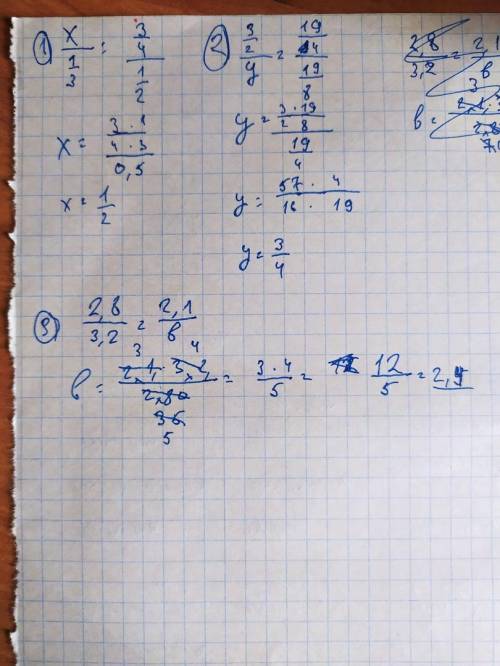 1) x / (1/3) = (3/4) / (1/2)
x = ((3·1)/(4·3)) / 0,5
x = 1/2
2) (3/2) / y = (19/4) / (19/8)
y = ((3·19)/(2 8)) / (19/4)
y = (57·4)/(16·19)
y = 3/4
2,8/3,2 = 2,1/в
в =
3) 2,8/3,2 = 2,1/в
3 4
в = (2,1·3,2)/2,80 = (3·4)/5 = 12/5 = 2,4
36
5